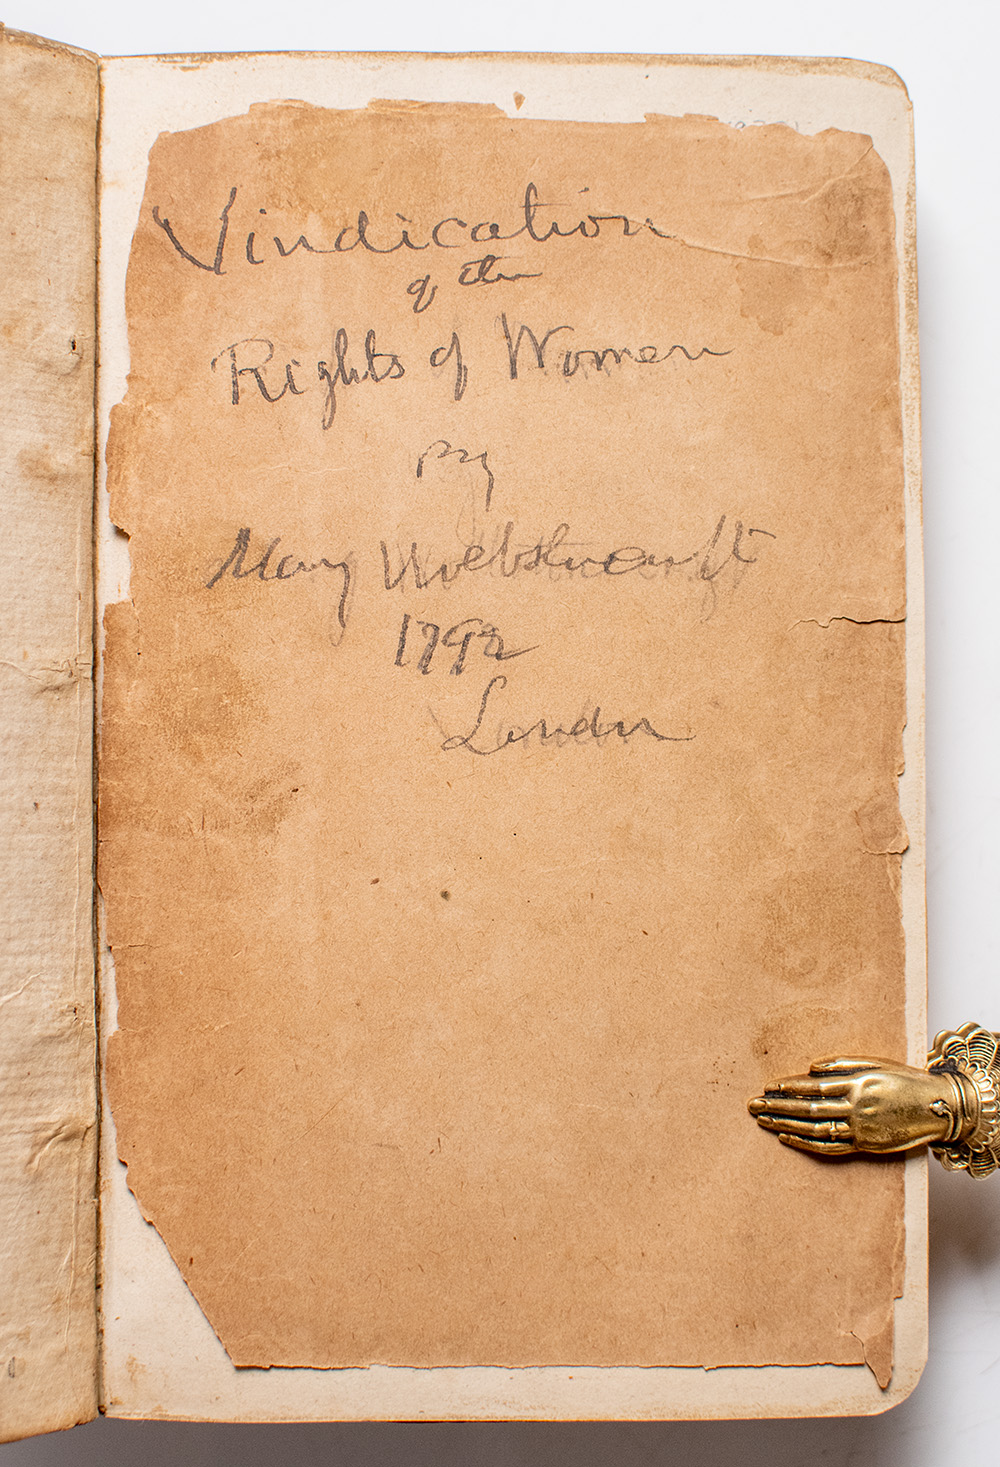 Vindication
of the
Rights of Women
by
Mary
1792
London